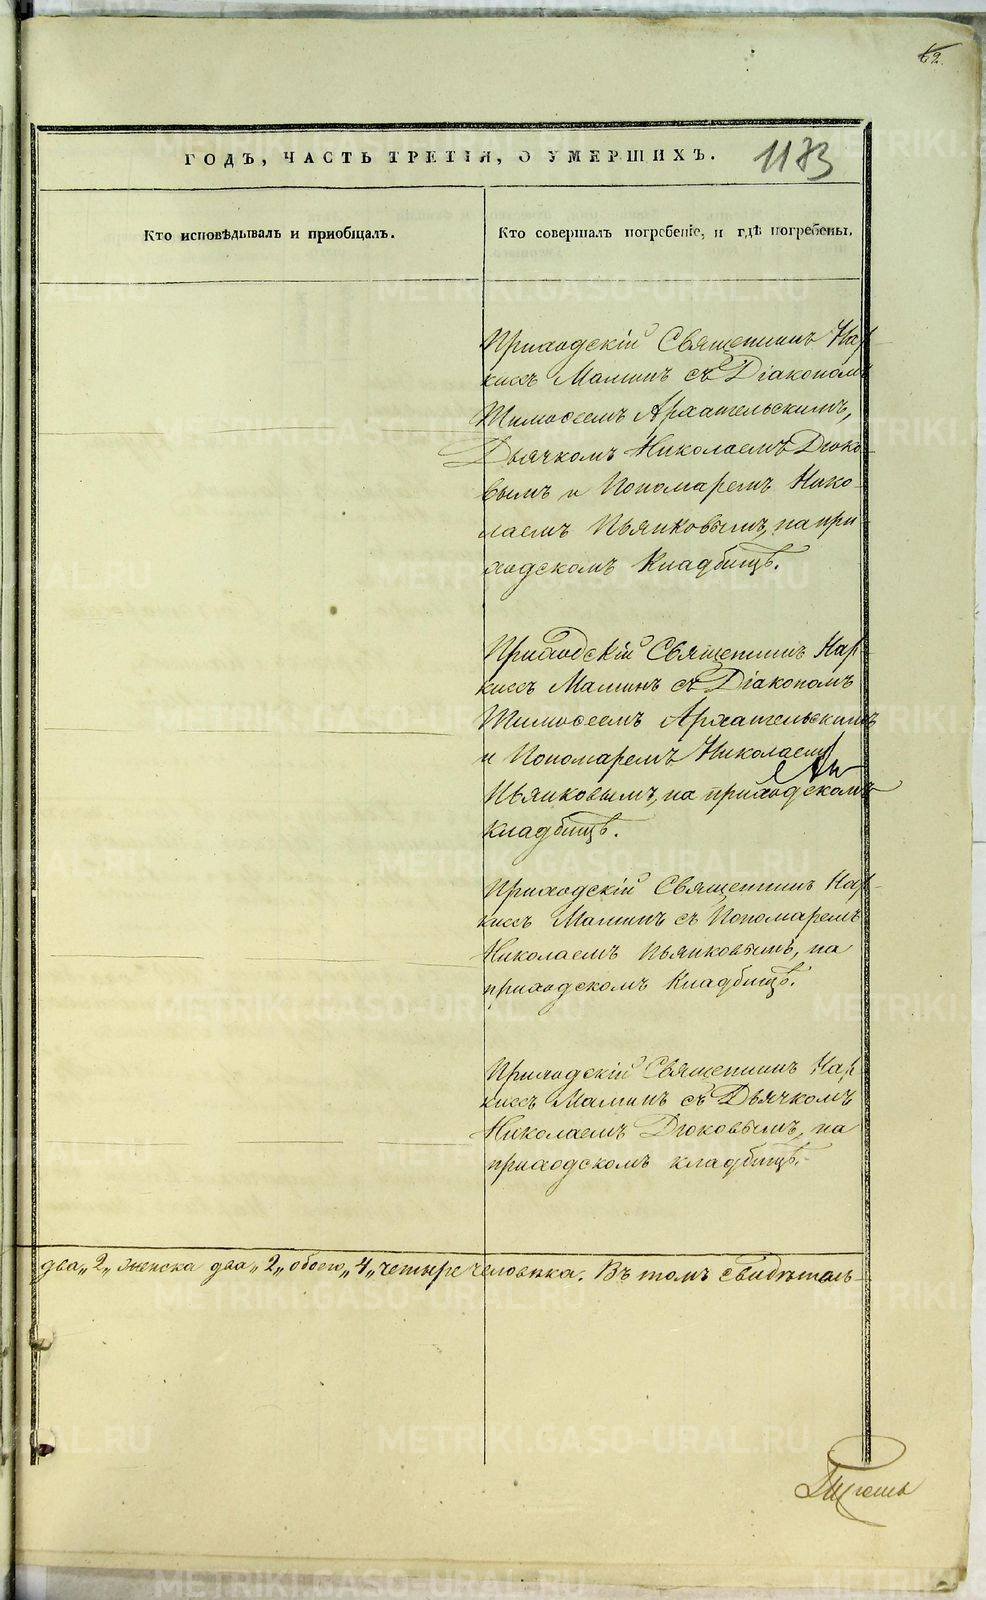 62.
ГОДЪ, ЧАСТЬ ТРЕТІЯ, О УМЕРШИХЪ.
1173
Кто исповѣдывалъ и приобщалъ.
Кто совершалъ погребеніе, и гдѣ погребены.
Приходскій Священникъ Нар-
киссъ Маминъ съ Діакономъ
Тимоѳеемъ Архангельскимъ,
Дьячкомъ Николаемъ Дюко-
вымъ и Пономаремъ Нико-
лаемъ Пьянковымъ, на при-
ходскомъ Кладбищѣ.
Приходскій Священникъ Нар-
киссъ Маминъ съ Діакономъ
Тимоѳеемъ Архангельскимъ
и Пономаремъ Николаемъ
Пьянковымъ, на приходскомъ
кладбищѣ.
Приходскій Священникъ Нар-
киссъ Маминъ съ Пономаремъ
Николаемъ Пьянковымъ, на
приходскомъ Кладбищѣ.
Приходскій Священникъ Нар-
киссъ Маминъ съ Дьячкомъ
Николаемъ Дюковымъ, на
приходскомъ кладбищѣ.
два „2„ женска два „2„ обоего „4„ четыре человѣка. Въ томъ свидѣтель-
METRIKI.GASO-URAL.RU